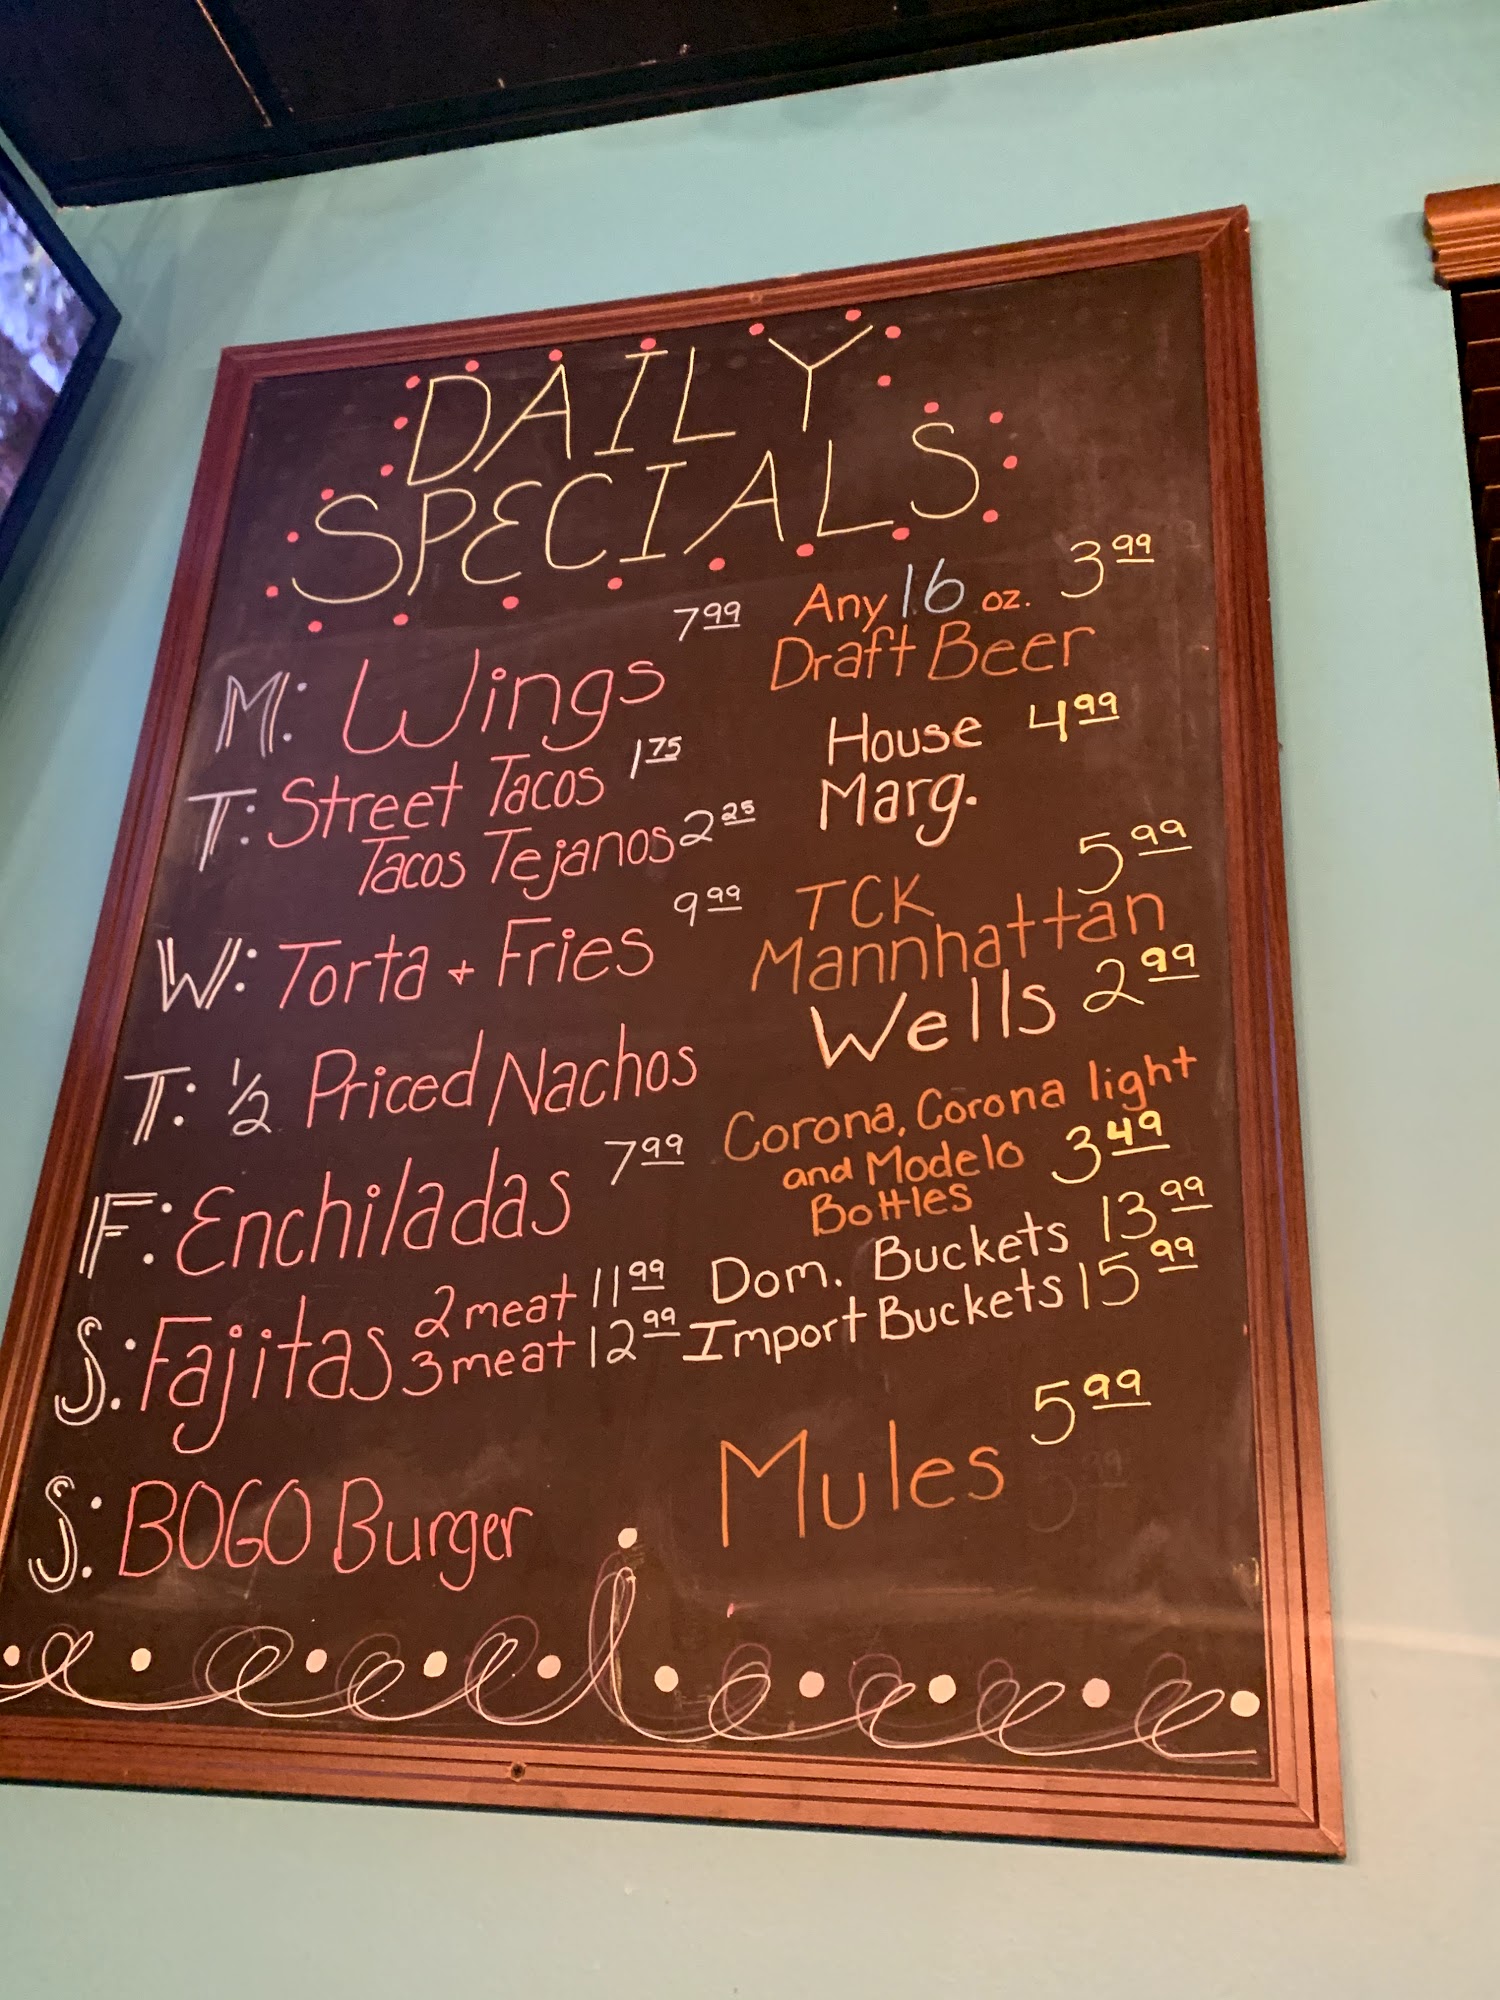 DAILY
SPECIALS
M: Wings 7.99
T: Street Tacos 1.75
Tacos Tejanos 2.25
W: Torta + Fries 9.99
T: 1/2 Priced Nachos
F: Enchiladas 7.99
S: Fajitas 2 meat 11.99
3 meat 12.99
S: BOGO Burger
Any 16 oz. 3.99
Draft Beer
House 4.99
Marg.
TCK 5.99
Mannhattan
Wells 2.99
Corona, Corona light
and Modelo 3.49
Bottles
Dom. Buckets 13.99
Import Buckets 15.99
Mules 5.99